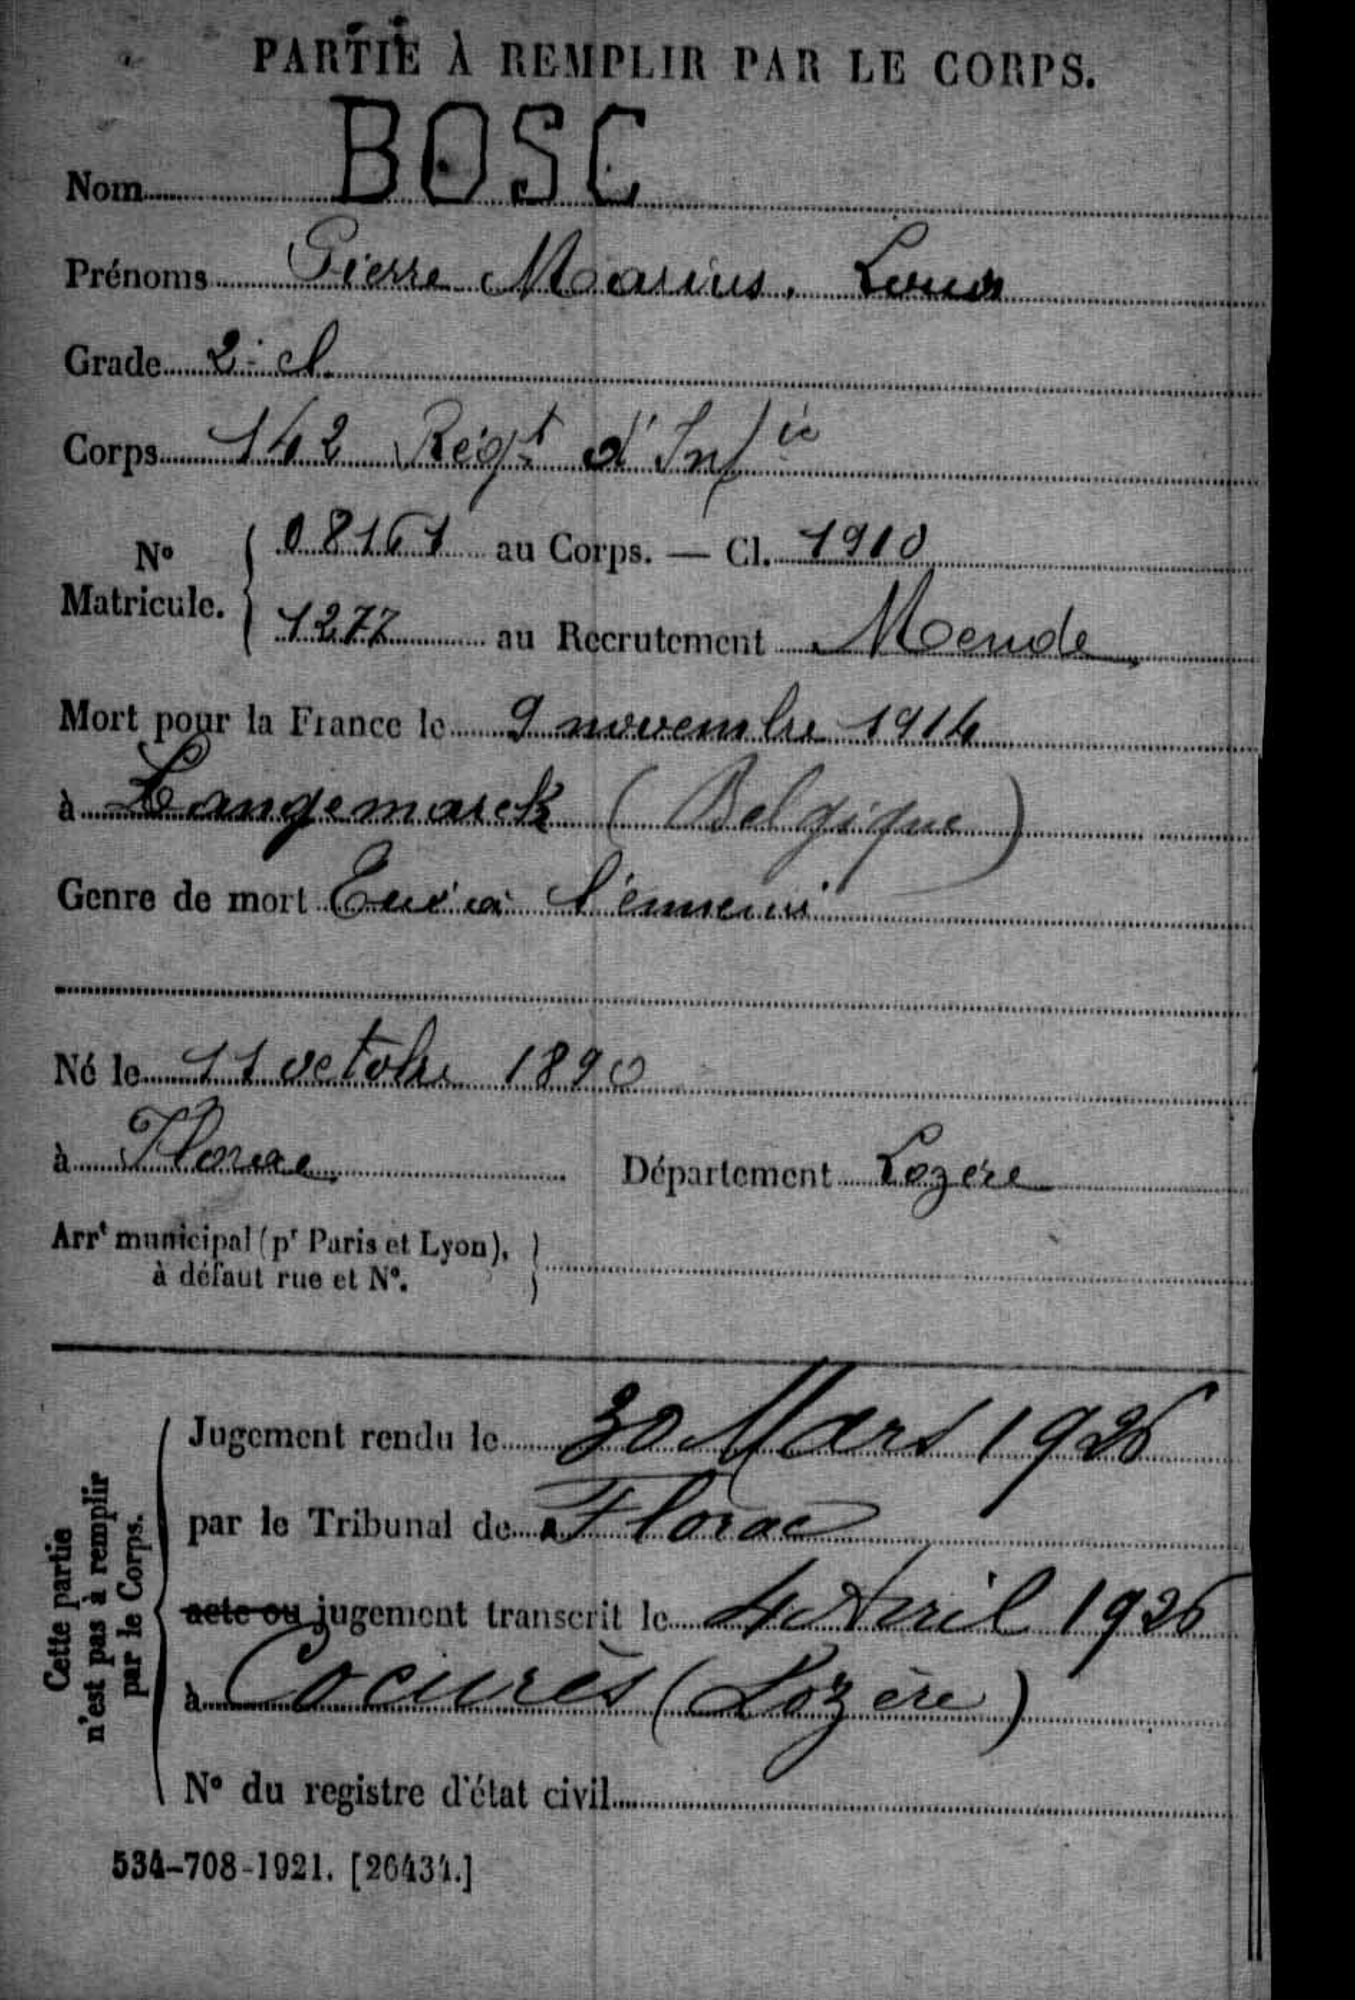 PARTIE À REMPLIR PAR LE CORPS.
Nom BOSC
Prénoms Pierre Marius. Louis
Grade 2e cl.
Corps 142 Régt d'Infie
No Matricule. 08161 au Corps. — Cl. 1910
1277 au Recrutement Mende
Mort pour la France le 9 novembre 1914
à Langemarck (Belgique)
Genre de mort Tué à l'ennemi
Né le 11 octobre 1890
à Florac Département Lozère
Arrt municipal (pr Paris et Lyon),
à défaut rue et No.
Cette partie
n'est pas à remplir
par le Corps.
Jugement rendu le 30 Mars 1926
par le Tribunal de Florac
acte ou jugement transcrit le 4 Avril 1926
à Cocurès (Lozère)
No du registre d'état civil
534-708-1921. [26434.]